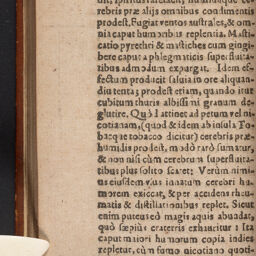 rebris præ alijs omnibus condimentis
prodest, Fugiat ventos australes, & om-
nia caput humoribus replentia. Masti-
catio pyrethri & mastiches cum gingi-
bere caput a phlegmaticis superfluita-
tibus admodum expurgat. Idem ef-
fectum producit saluia in ore aliquan-
diu tenta; prodest etiam, quando itur
cubitum thuris albissimi granum de-
glutire. Quod attinet ad petum vel ni-
cotianam, (quod & idem ab insula To-
bacque tobacco dicitur) cerebris præ-
humidis prodest, modò rarò sumatur,
& non nisi cùm cerebrum superfluita-
tibus plus solito scatet; Verùm nimi-
us eiusdem vsus innatum cerebri hu-
morem exiccat, & per accidens rheu-
matis & distillationibus replet. Sicut
enim puteus ed magis aquis abundat,
quò sæpiùs crateris exhauritur: Ita
caput maiori humorum copia indies
repletur, cùm fumo nicotiano quoti-